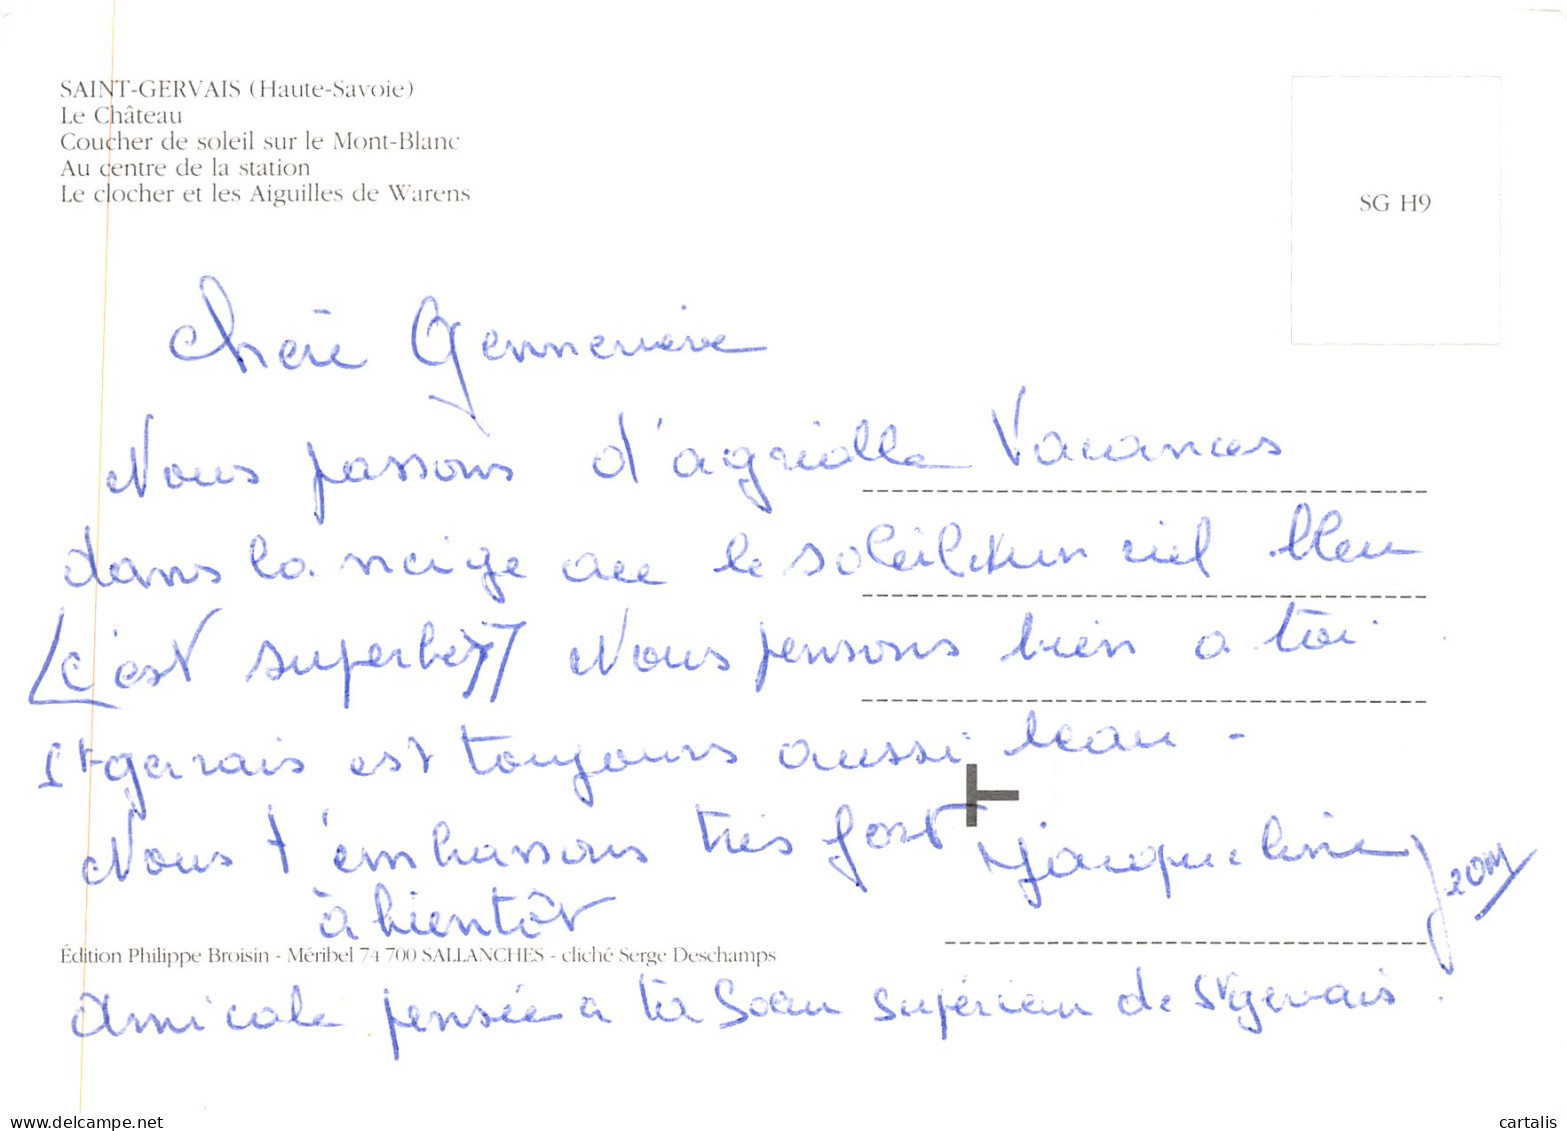 SAINT-GERVAIS (Haute-Savoie)
Le Château
Coucher de soleil sur le Mont-Blanc
Au centre de la station
Le clocher et les Aiguilles de Warens
SG H9
Chère Genneviève
Nous passons d'agréable Vacances
dans la neige avec le soleil et un ciel bleu
c'est superbe !! Nous pensons bien a toi
St gervais est toujours aussi beau -
Nous t'embrassons très fort Jacqueline
à bientôt
Édition Philippe Broisin - Méribel 74 700 SALLANCHES - cliché Serge Deschamps
Amicale pensée a ta Soeur supérieur de St gervais.
delcampe.net
cartalis